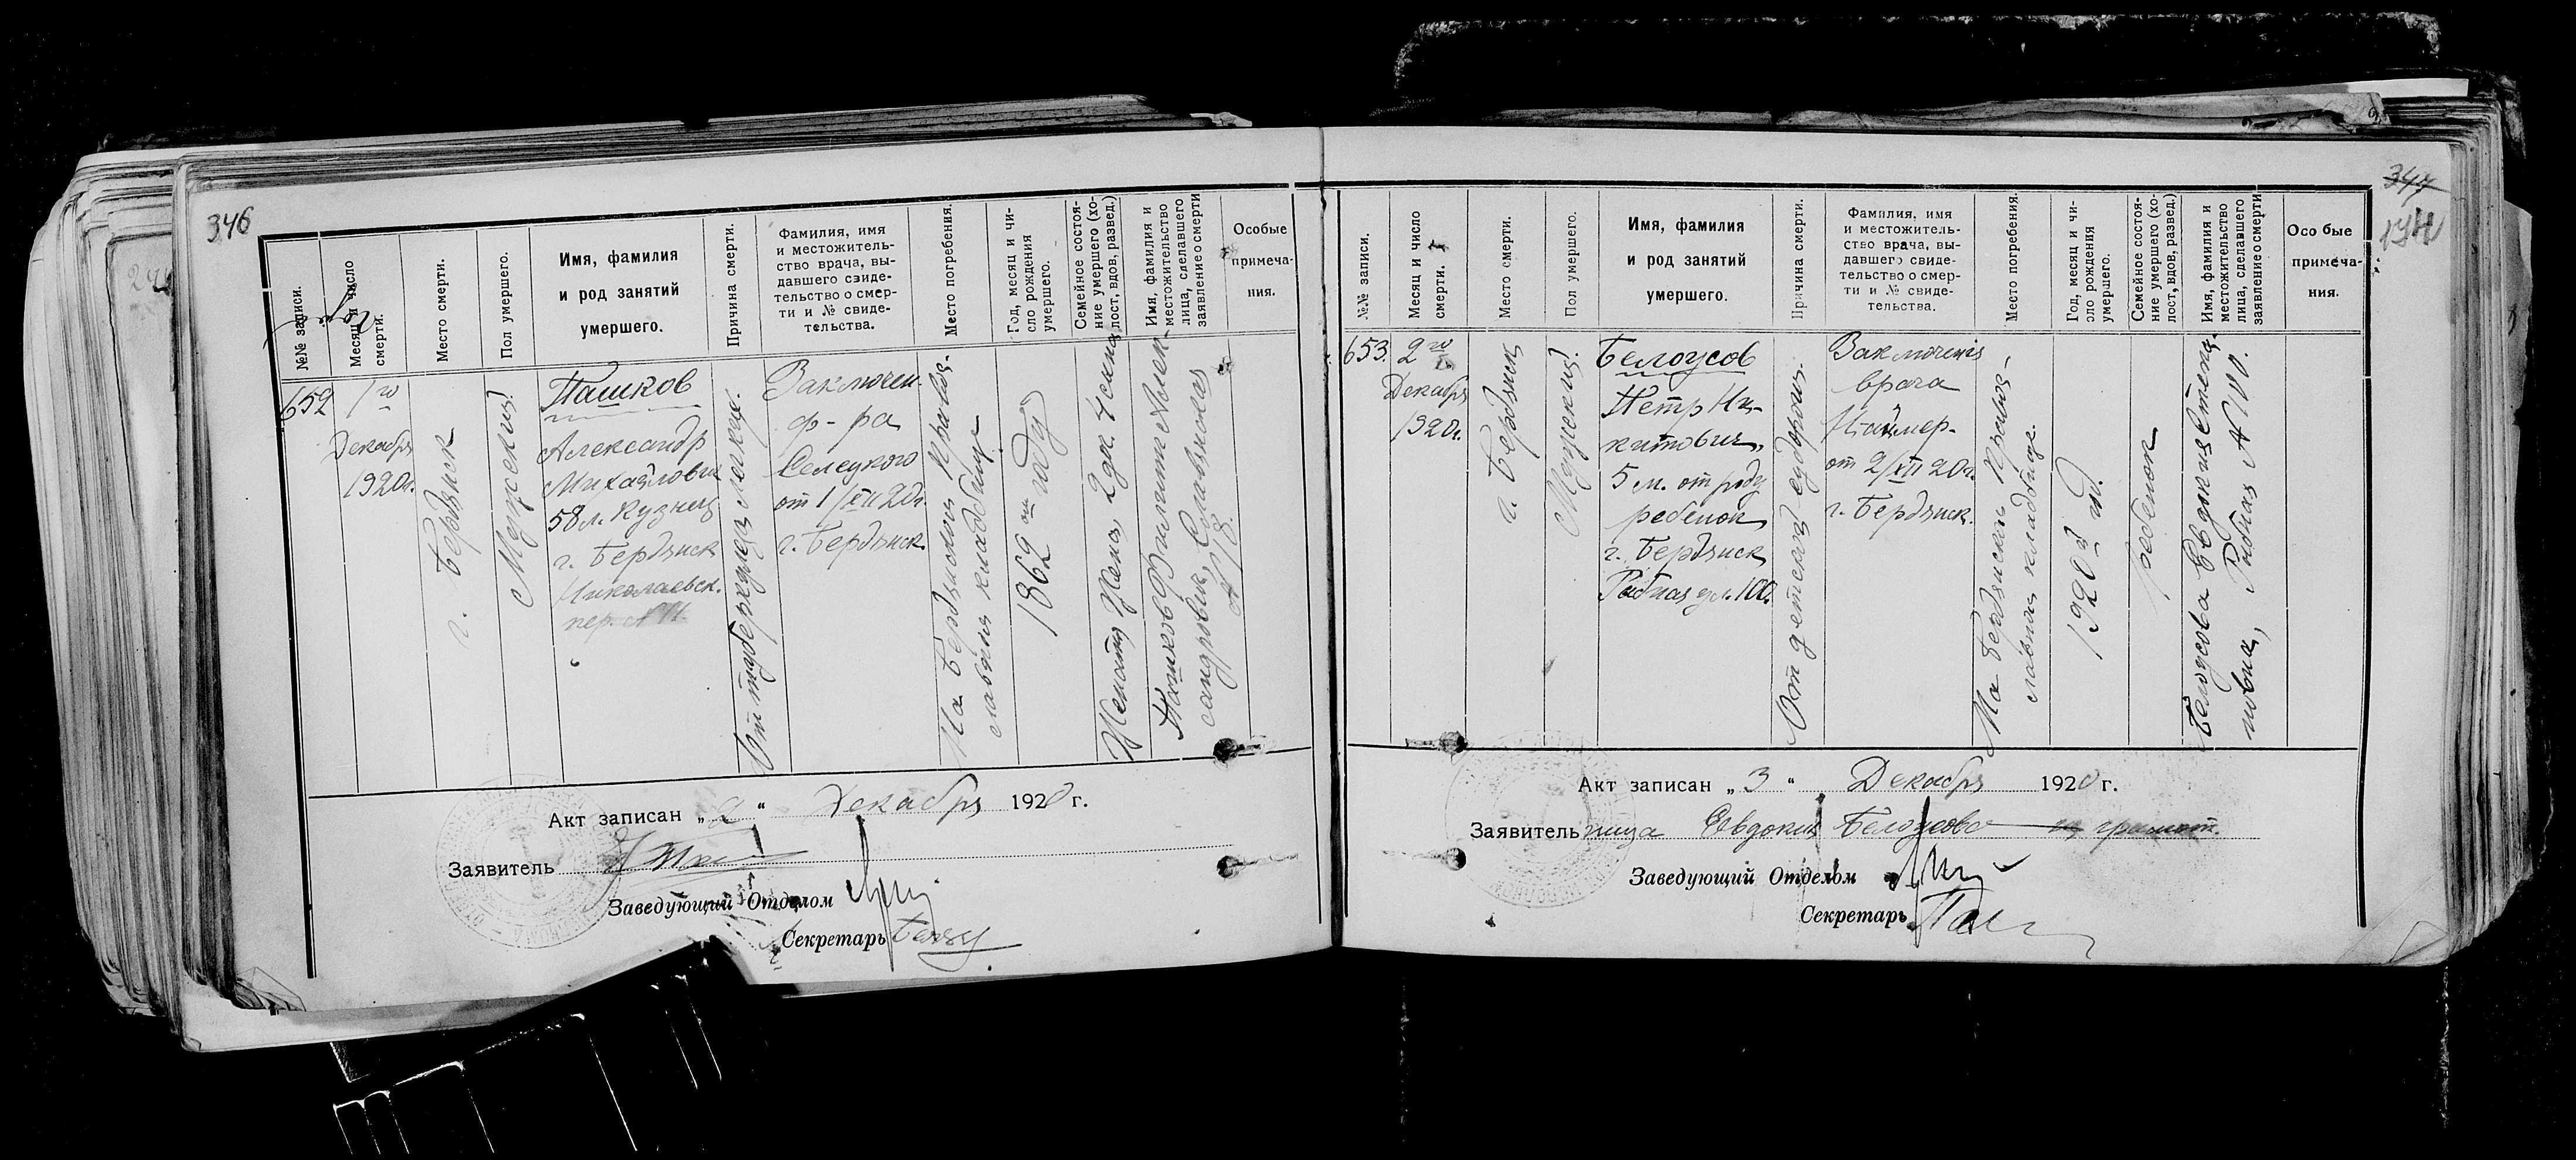 346
№№ записи.
Месяц и число
смерти.
Место смерти.
Пол умершего.
Имя, фамилия
и род занятий
умершего.
Причина смерти.
Фамилия, имя
и местожитель-
ство врача, вы-
давшего свиде-
тельство о смер-
ти и № свиде-
тельства.
Место погребения.
Год, месяц и чи-
сло рождения
умершего.
Семейное состоя-
ние умершего (хо-
лост, вдов, развед.)
Имя, фамилия и
местожительство
лица, сделавшего
заявление о смерти
Особые
примеча-
ния.
652
1го
Декабря
1920г.
г. Бердянск
Мужеский
Пашков
Александр
Михайлович
58 л. Кузнец
г. Бердянск
Николаевск.
пер. №
От туберкулеза легких.
Заключен.
ф-ра
Селецкого
от 1/XII 20г.
г. Бердянск.
На Бердянском Правос-
лавном кладбище
1862ом году
Женатый Жена, 2 дет. 1 семья
Пашков Филипп Алек-
сандрович,
№ 18.
Акт записан „2“ Декабря 1920 г.
Заявитель
Заведующий Отделом
Секретарь
347
№№ записи.
Месяц и число
смерти.
Место смерти.
Пол умершего.
Имя, фамилия
и род занятий
умершего.
Причина смерти.
Фамилия, имя
и местожитель-
ство врача, вы-
давшего свиде-
тельство о смер-
ти и № свиде-
тельства.
Место погребения.
Год, месяц и чи-
сло рождения
умершего.
Семейное состоя-
ние умершего (хо-
лост, вдов, развед.)
Имя, фамилия и
местожительство
лица, сделавшего
заявление о смерти
Особые
примеча-
ния.
653.
2го
Декабря
1920г.
г. Бердянск
Мужеский.
Белоусов
Петр Ни-
китович,
5 м. от роду
ребенок
г. Бердянск
Рыбная ул. 100.
От детской судороги.
Заключения
врача
от 2/XII 20г.
г. Бердянск.
На Бердянском Правос-
лавном кладбище.
1920й год.
ребенок
Белоусова Евдокия Степа-
новна, Рыбная № 100.
Акт записан „3“ Декабря 1920 г.
Заявительница Евдокия Белоусова грамот.
Заведующий Отделом
Секретарь